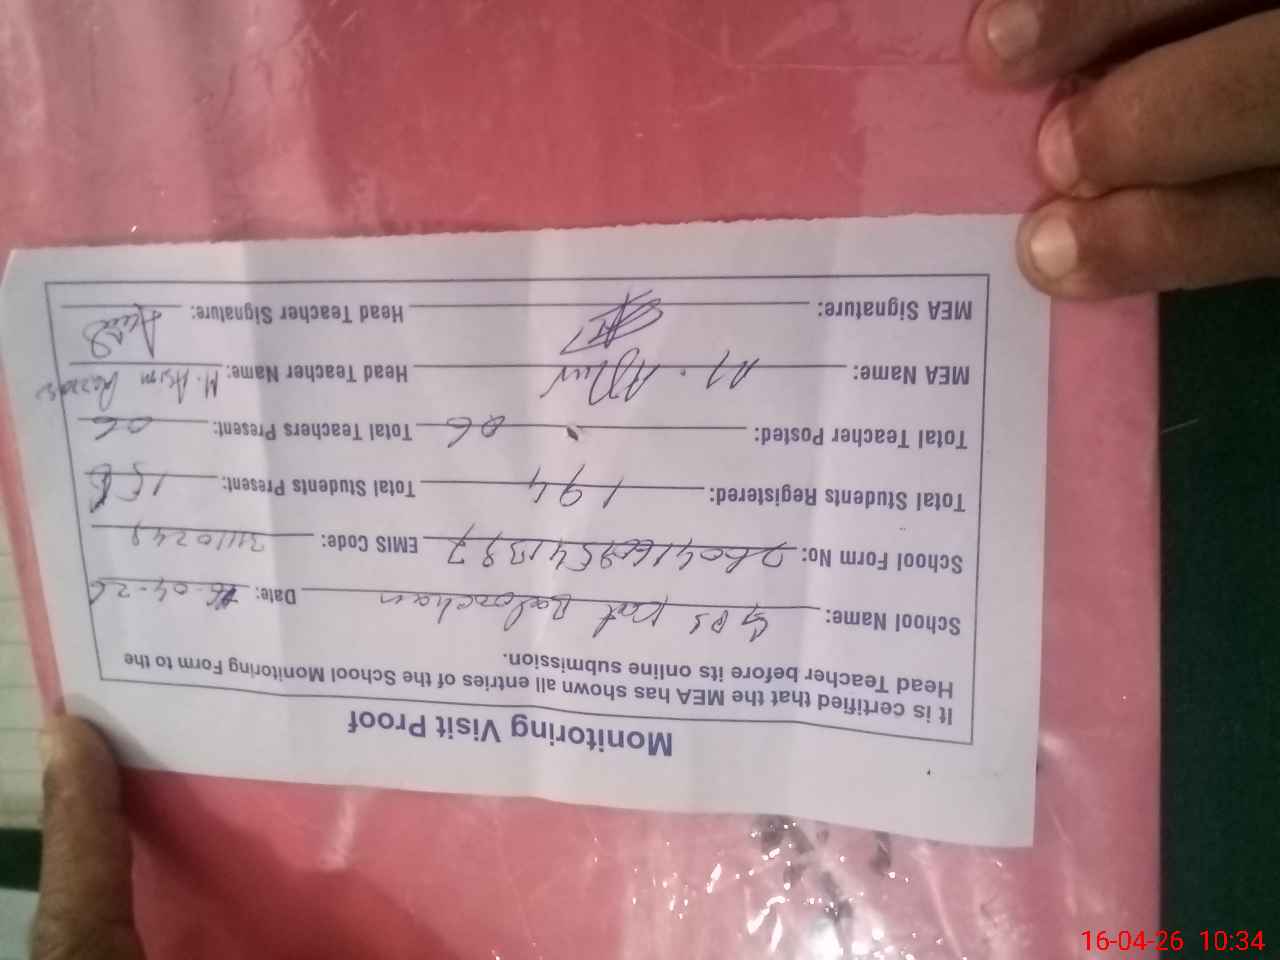 Monitoring Visit Proof
It is certified that the MEA has shown all entries of the School Monitoring Form to the
Head Teacher before its online submission.
School Name: GPS Kot Balochan Date: 16-04-26
School Form No: EMIS Code:
Total Students Registered: 194 Total Students Present:
Total Teacher Posted: 06 Total Teachers Present: 06
MEA Name: M. Head Teacher Name: M. Asim
MEA Signature: Head Teacher Signature:
16-04-26 10:34